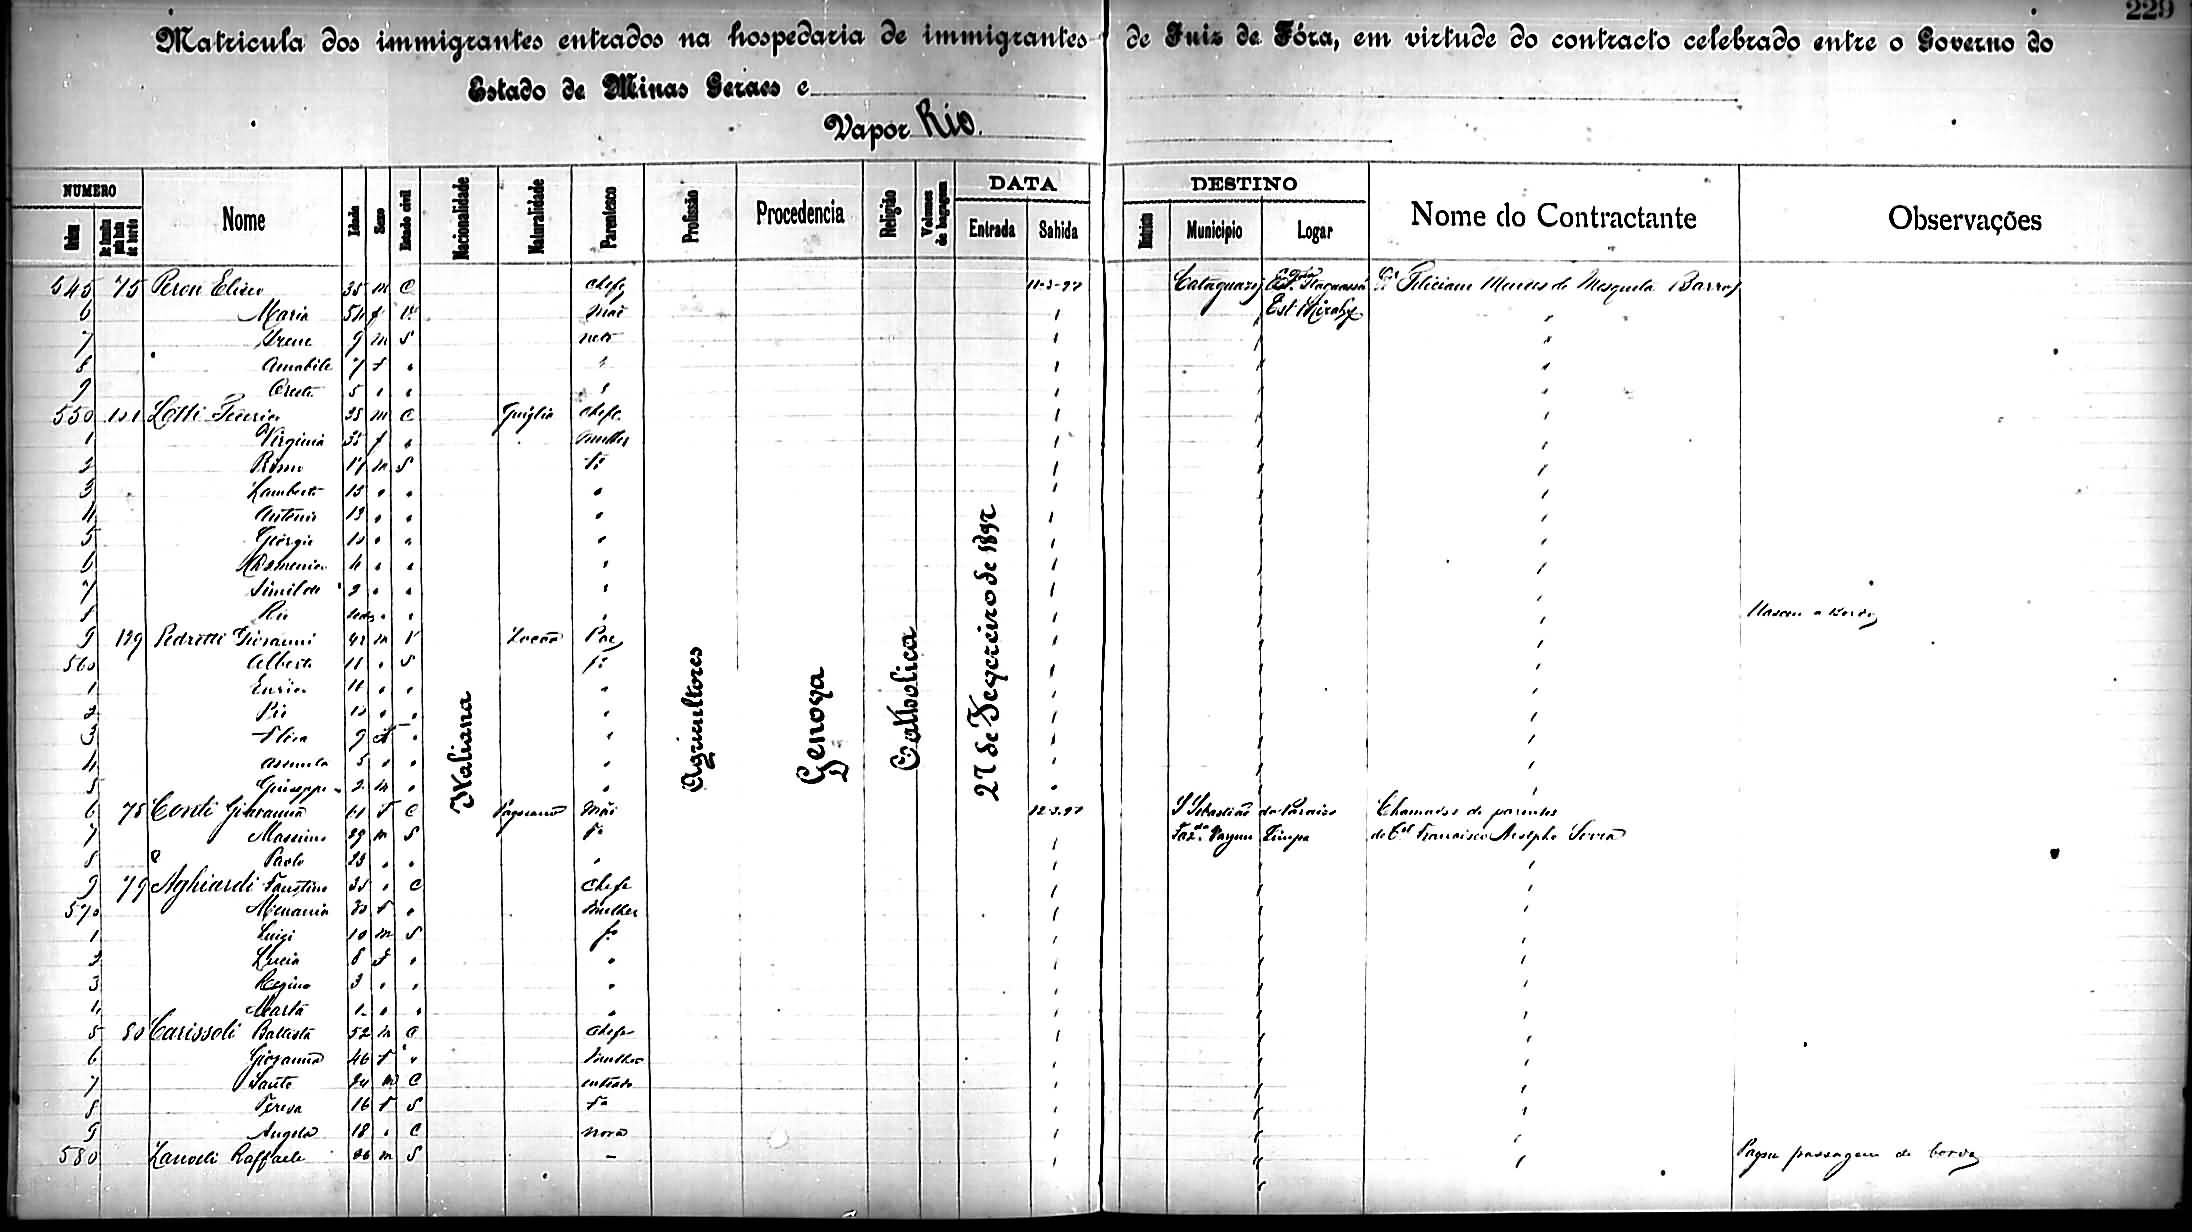 229
Matricula dos immigrantes entrados na hospedaria de immigrantes de Juiz de Fóra, em virtude do contracto celebrado entre o Governo do
Estado de Minas Geraes e
Vapor Rio.
NUMERO Nome Idade Sexo Estado civil Nacionalidade Naturalidade Parentesco Profissão Procedencia Religião Volumes de bagagem DATA DESTINO Nome do Contractante Observações
Ordem De familia pela lista de bordo Entrada Sahida Districto Municipio Logar
Italiana
Agricultores
Genova
Catholica
27 de Fevereiro de 1897
545 75 Peron Eliseo 35 m C chefe 11-3-97 Cataguazes Feliciano Mendes de Mesquita Barros
6 Maria 54 f V mãe Est. Mirahy
7 9 m S neto
8 Amabile 7 f "
9 Oreste 5 " " "
550 101 Lotti m C Guiglia chefe
1 Virginia 35 f " mulher
2 Remo 17 m S fº
3 Lamberto 15 " " "
4 Antonio 13 " " "
5 Giorgio 10 " " "
6 4 " " "
7 2 " " "
8 Rio " " " Nasceu a bordo
9 129 Pedretti Giovanni 42 m V Pae
560 Alberto " S fº
1 Enrico 11 " " "
2 Pio 10 " " "
3 9 f " "
4 Assunta 5 " " "
5 Giuseppe 2 m " "
6 78 Conti Giovanna 61 f C Mãi 12-3-97 S Sebastião do Paraizo Chamados de parentes
7 Massimo 29 m S fº Fazda Vargem Limpa do Cel Francisco Adolpho
8 Paolo 23 " " "
9 79 Aghiardi Faustino 35 " C chefe
570 30 f " mulher
1 Luigi 10 m S fº
2 Lucia 8 f " "
3 Regina 3 " " "
4 Marta 1 " " "
5 80 Carissoli Battista 52 m C chefe
6 Giovanna 46 f " mulher
7 Sante 24 m C
8 Teresa 16 f S fª
9 Angela 18 " C nora
580 Raffaele 26 m S — Pagou passagem de bordo